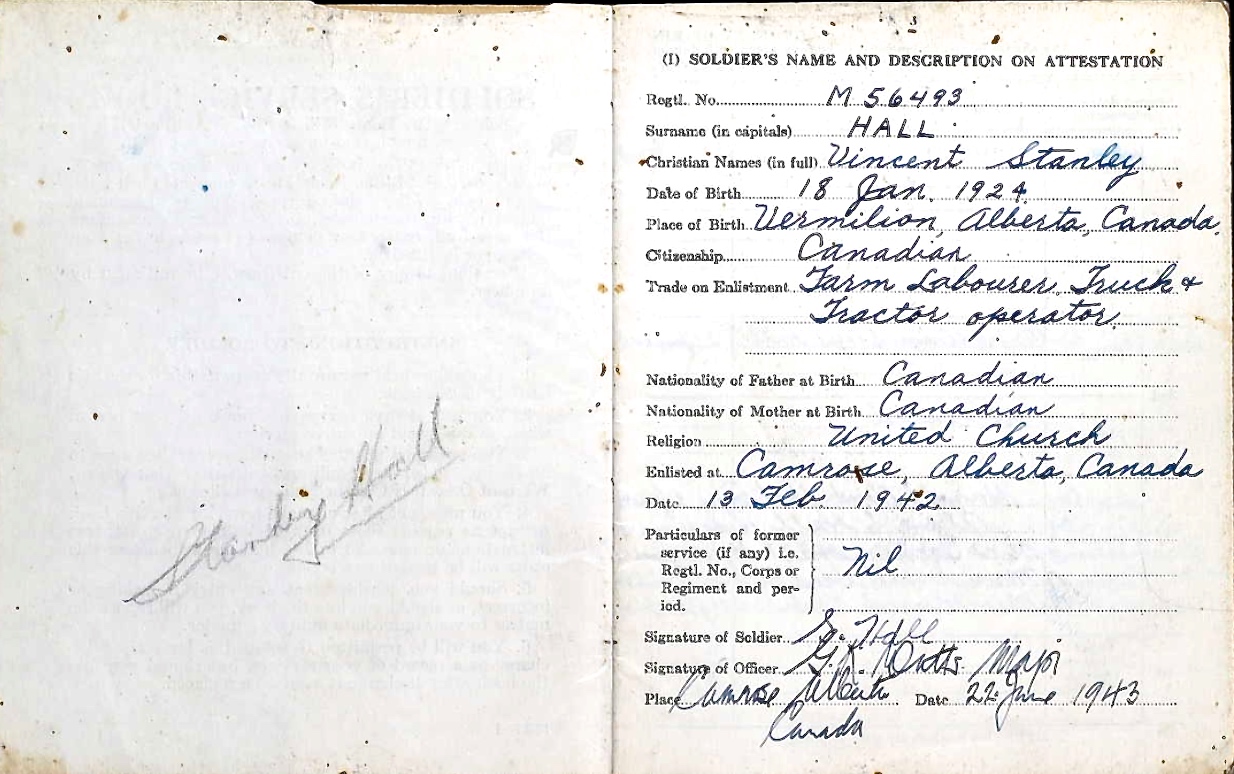 Stanley Hall
3
(I) SOLDIER'S NAME AND DESCRIPTION ON ATTESTATION
Regtl. No. M 56493
Surname (in capitals) HALL
Christian Names (in full) Vincent Stanley
Date of Birth 18 Jan. 1924
Place of Birth Vermilion, Alberta, Canada.
Citizenship Canadian
Trade on Enlistment Farm Labourer, Truck &
Tractor operator.
Nationality of Father at Birth Canadian
Nationality of Mother at Birth Canadian
Religion United Church
Enlisted at Camrose, Alberta, Canada
Date 13 Feb. 1942
Particulars of former
service (if any) i.e.
Regtl. No., Corps or
Regiment and per-
iod.
Nil
Signature of Soldier S. Hall
Signature of Officer G.K. Major
Place Camrose Alberta Date 22 June 1943
Canada